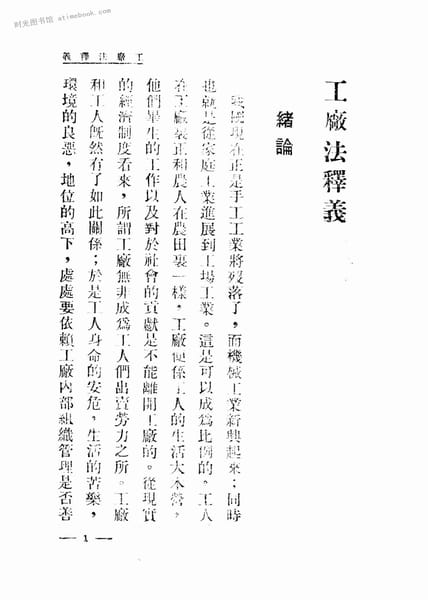 时光图书馆 www.atimebook.com
義釋法廠工
工廠法釋義
緒論
我國現在正是手工工業將歿落了，而機械工業新興起來；同時
也就是從家庭工業進展到工場工業。這是可以成為比例的。工人
在工廠裏正和農人在農田裏一樣，工廠便係工人的生活大本營。
他們畢生的工作以及對於社會的貢獻是不能離開工廠的。從現實
的經濟制度看來，所謂工廠無非成為工人們出賣勞力之所。工廠
和工人旣然有了如此關係；於是工人身命的安危，生活的苦樂，
環境的良惡，地位的高下，處處要依賴工廠內部組織管理是否善
— 1 —